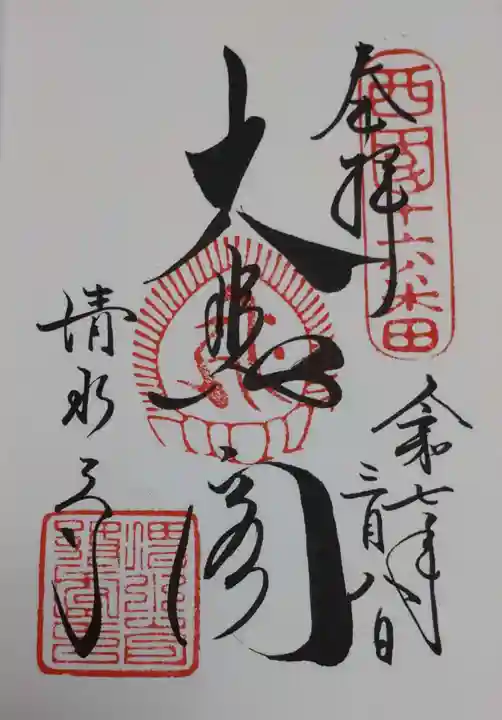 西国十六番
奉拝
令和七年
三月八日
大悲閣
清水寺